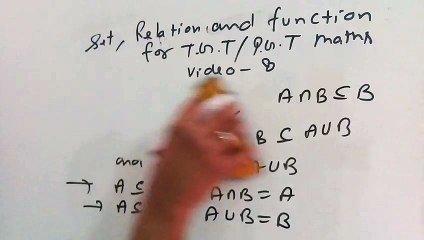 Set, Relation and function
for T.G.T / P.G.T maths
video - 8
A∩B⊆B
B ⊆ A∪B
∪B
→ A ⊆ A∩B = A
→ A ⊆ A∪B = B